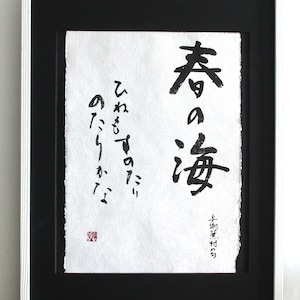 春の海
ひねもすのたり
のたりかな
与謝蕪村の句